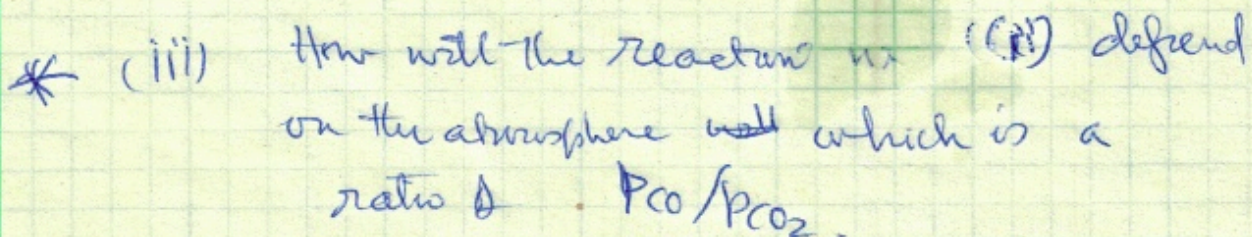 * (iii) How will the reaction in (ii) depend
on the atmosphere which is a
ratio of PCO/PCO2.